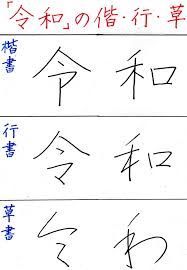 「令和」の偕・行・草
楷書
令和
行書
令和
草書
令和